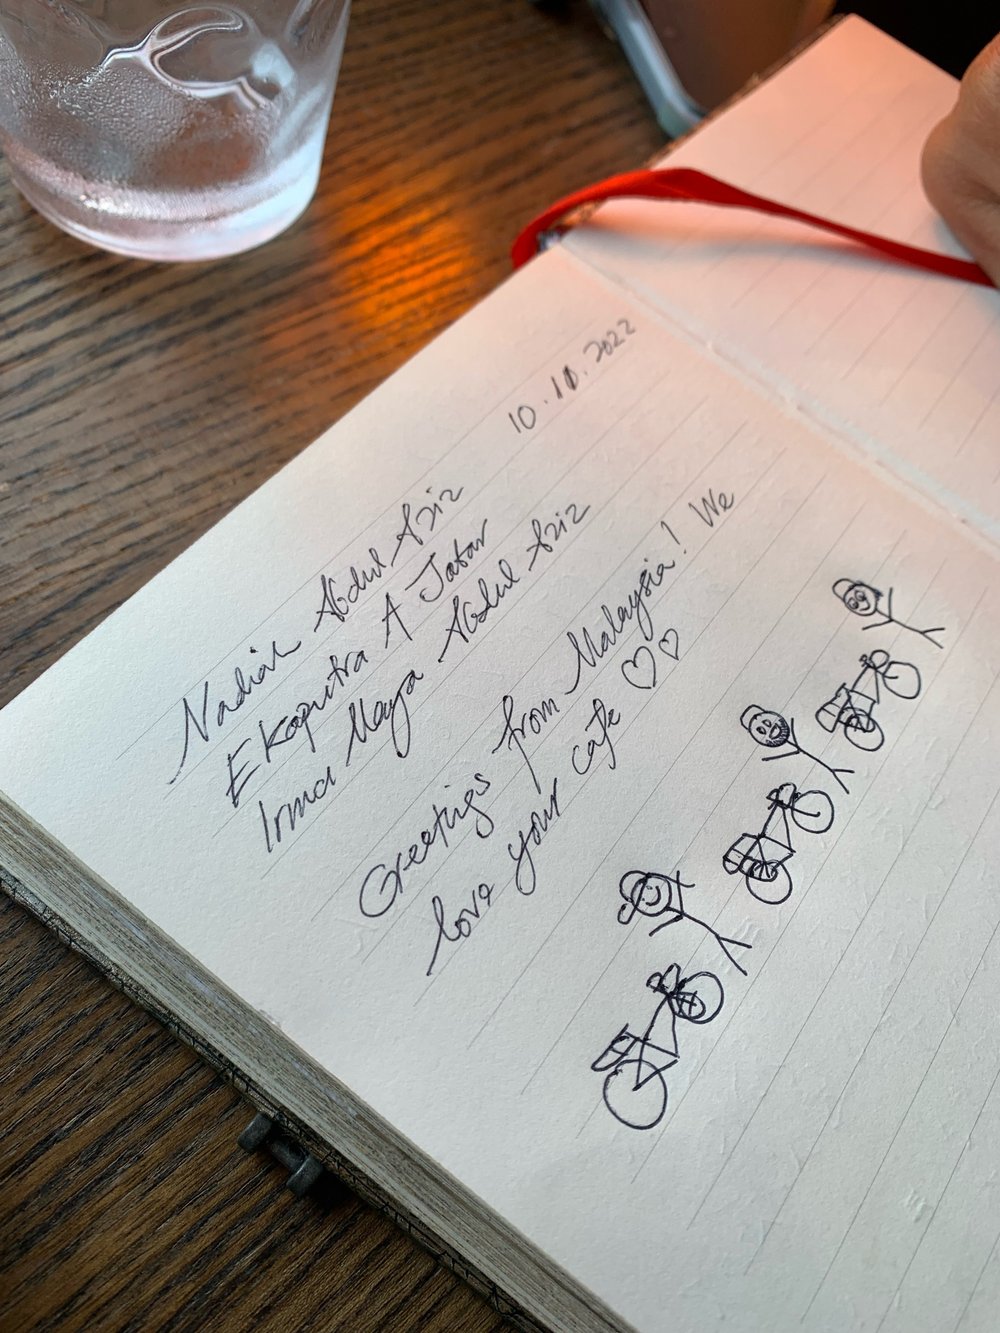 10.10.2022
Nadiah Abdul Aziz
Ekaputra A Jabar
Irma Maya Abdul Aziz
Greetings from Malaysia! We
love your cafe ♡♡